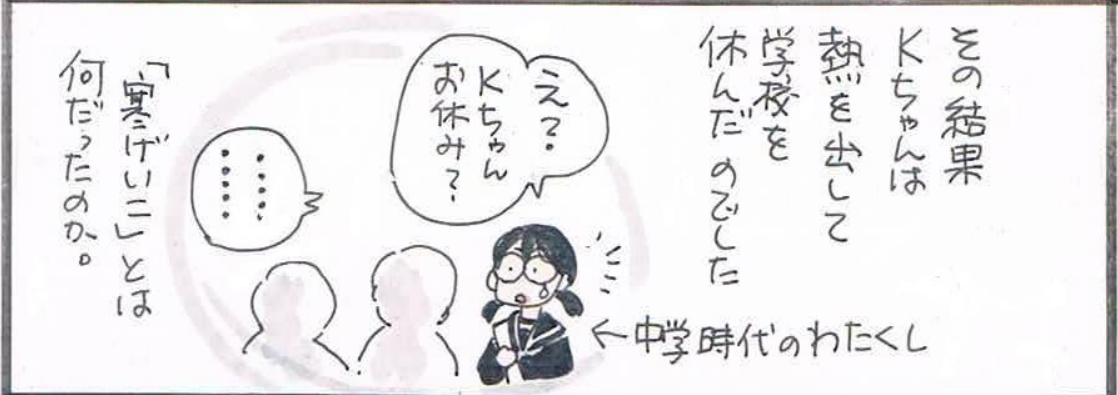 その結果
Kちゃんは
熱を出して
学校を
休んだのでした
え？
Kちゃん
お休み？
←中学時代のわたくし
・・・・・
・・・・・
「寒げいこ」とは
何だったのか。